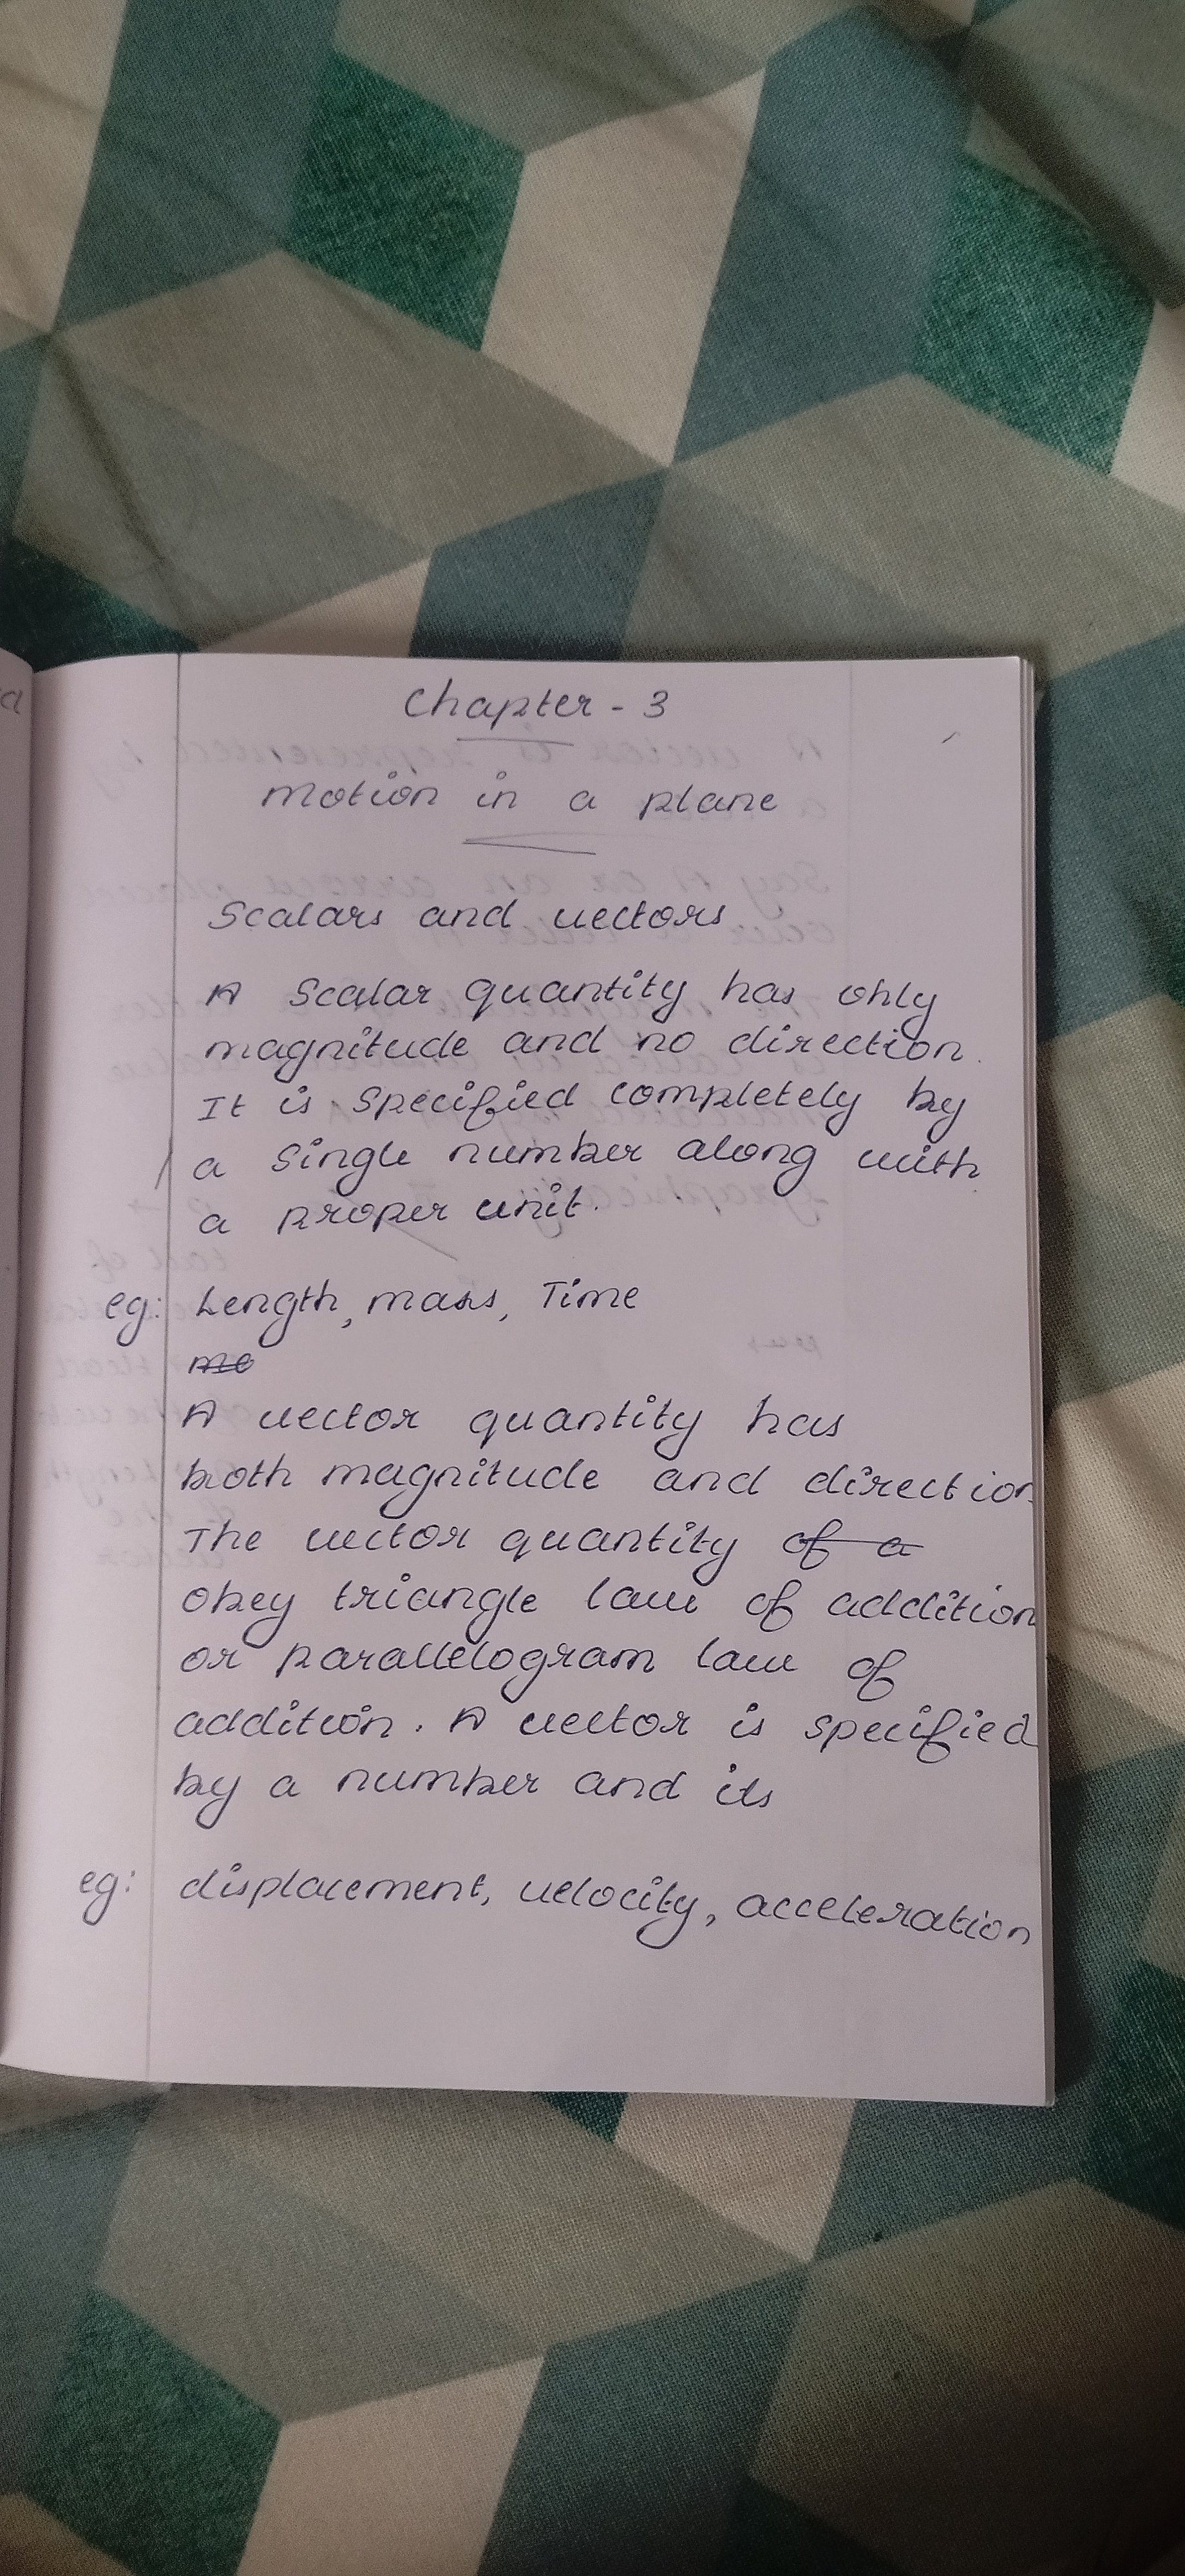 Chapter - 3
Motion in a plane
Scalars and vectors
A Scalar quantity has only
magnitude and no direction.
It is specified completely by
a single number along with
a proper unit.
eg: Length, mass, Time
A vector quantity has
both magnitude and direction
The vector quantity of a
obey triangle law of addition
or parallelogram law of
addition. A vector is specified
by a number and its
eg: displacement, velocity, acceleration